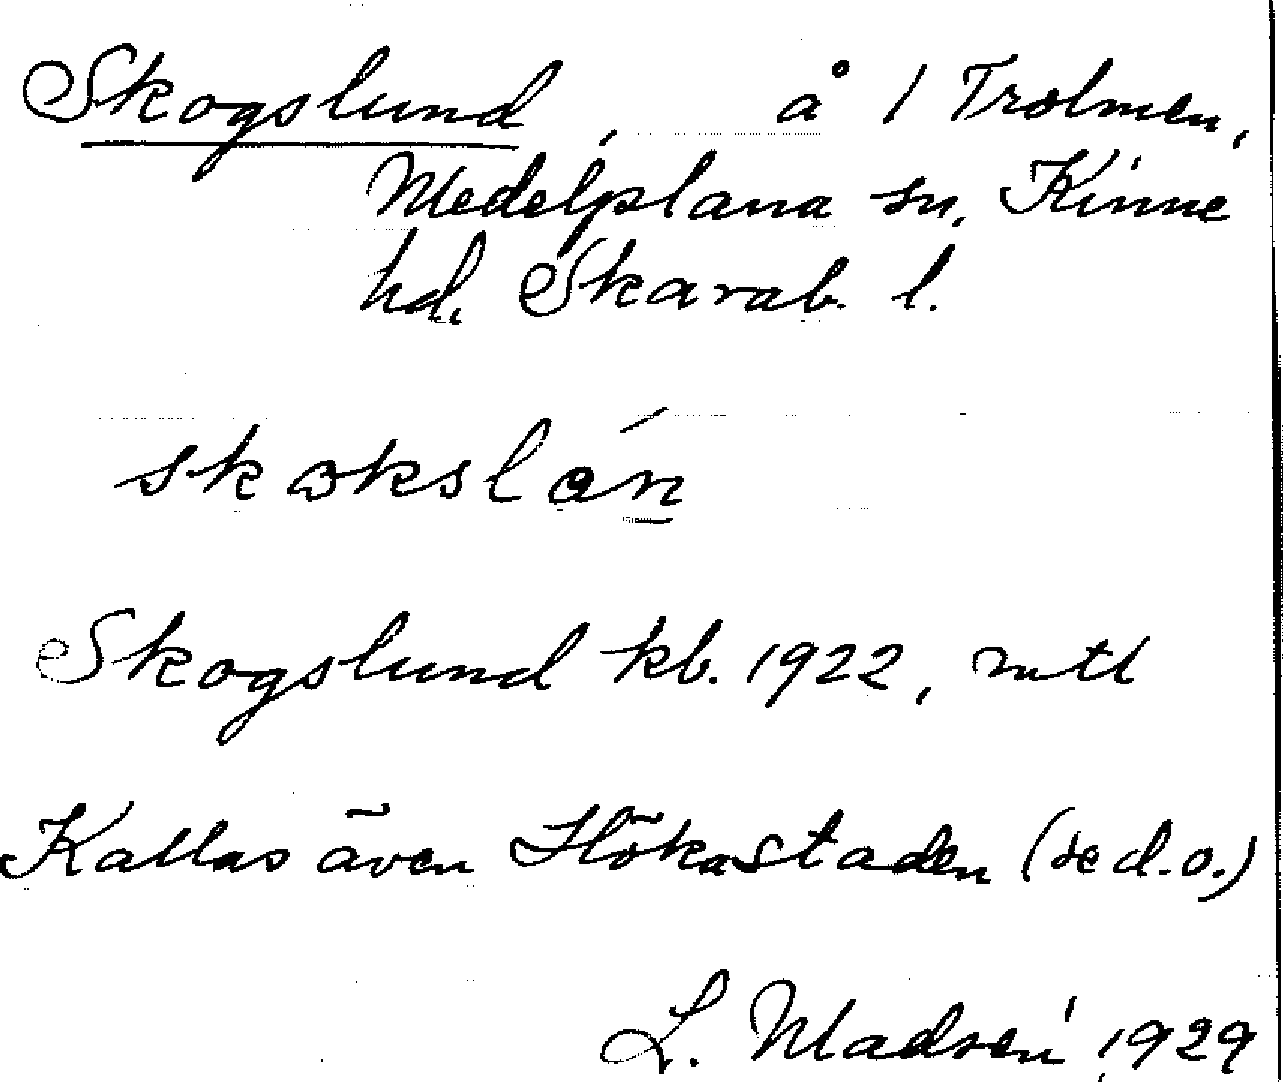 Skogslund, å 1 Trolmen,
Medelplana sn, Kinne
hd. Skarab. l.
skɷkslán
Skogslund kb. 1922, mtl
Kallas även Hökastaden (se d.o.)
L. Madsén 1929